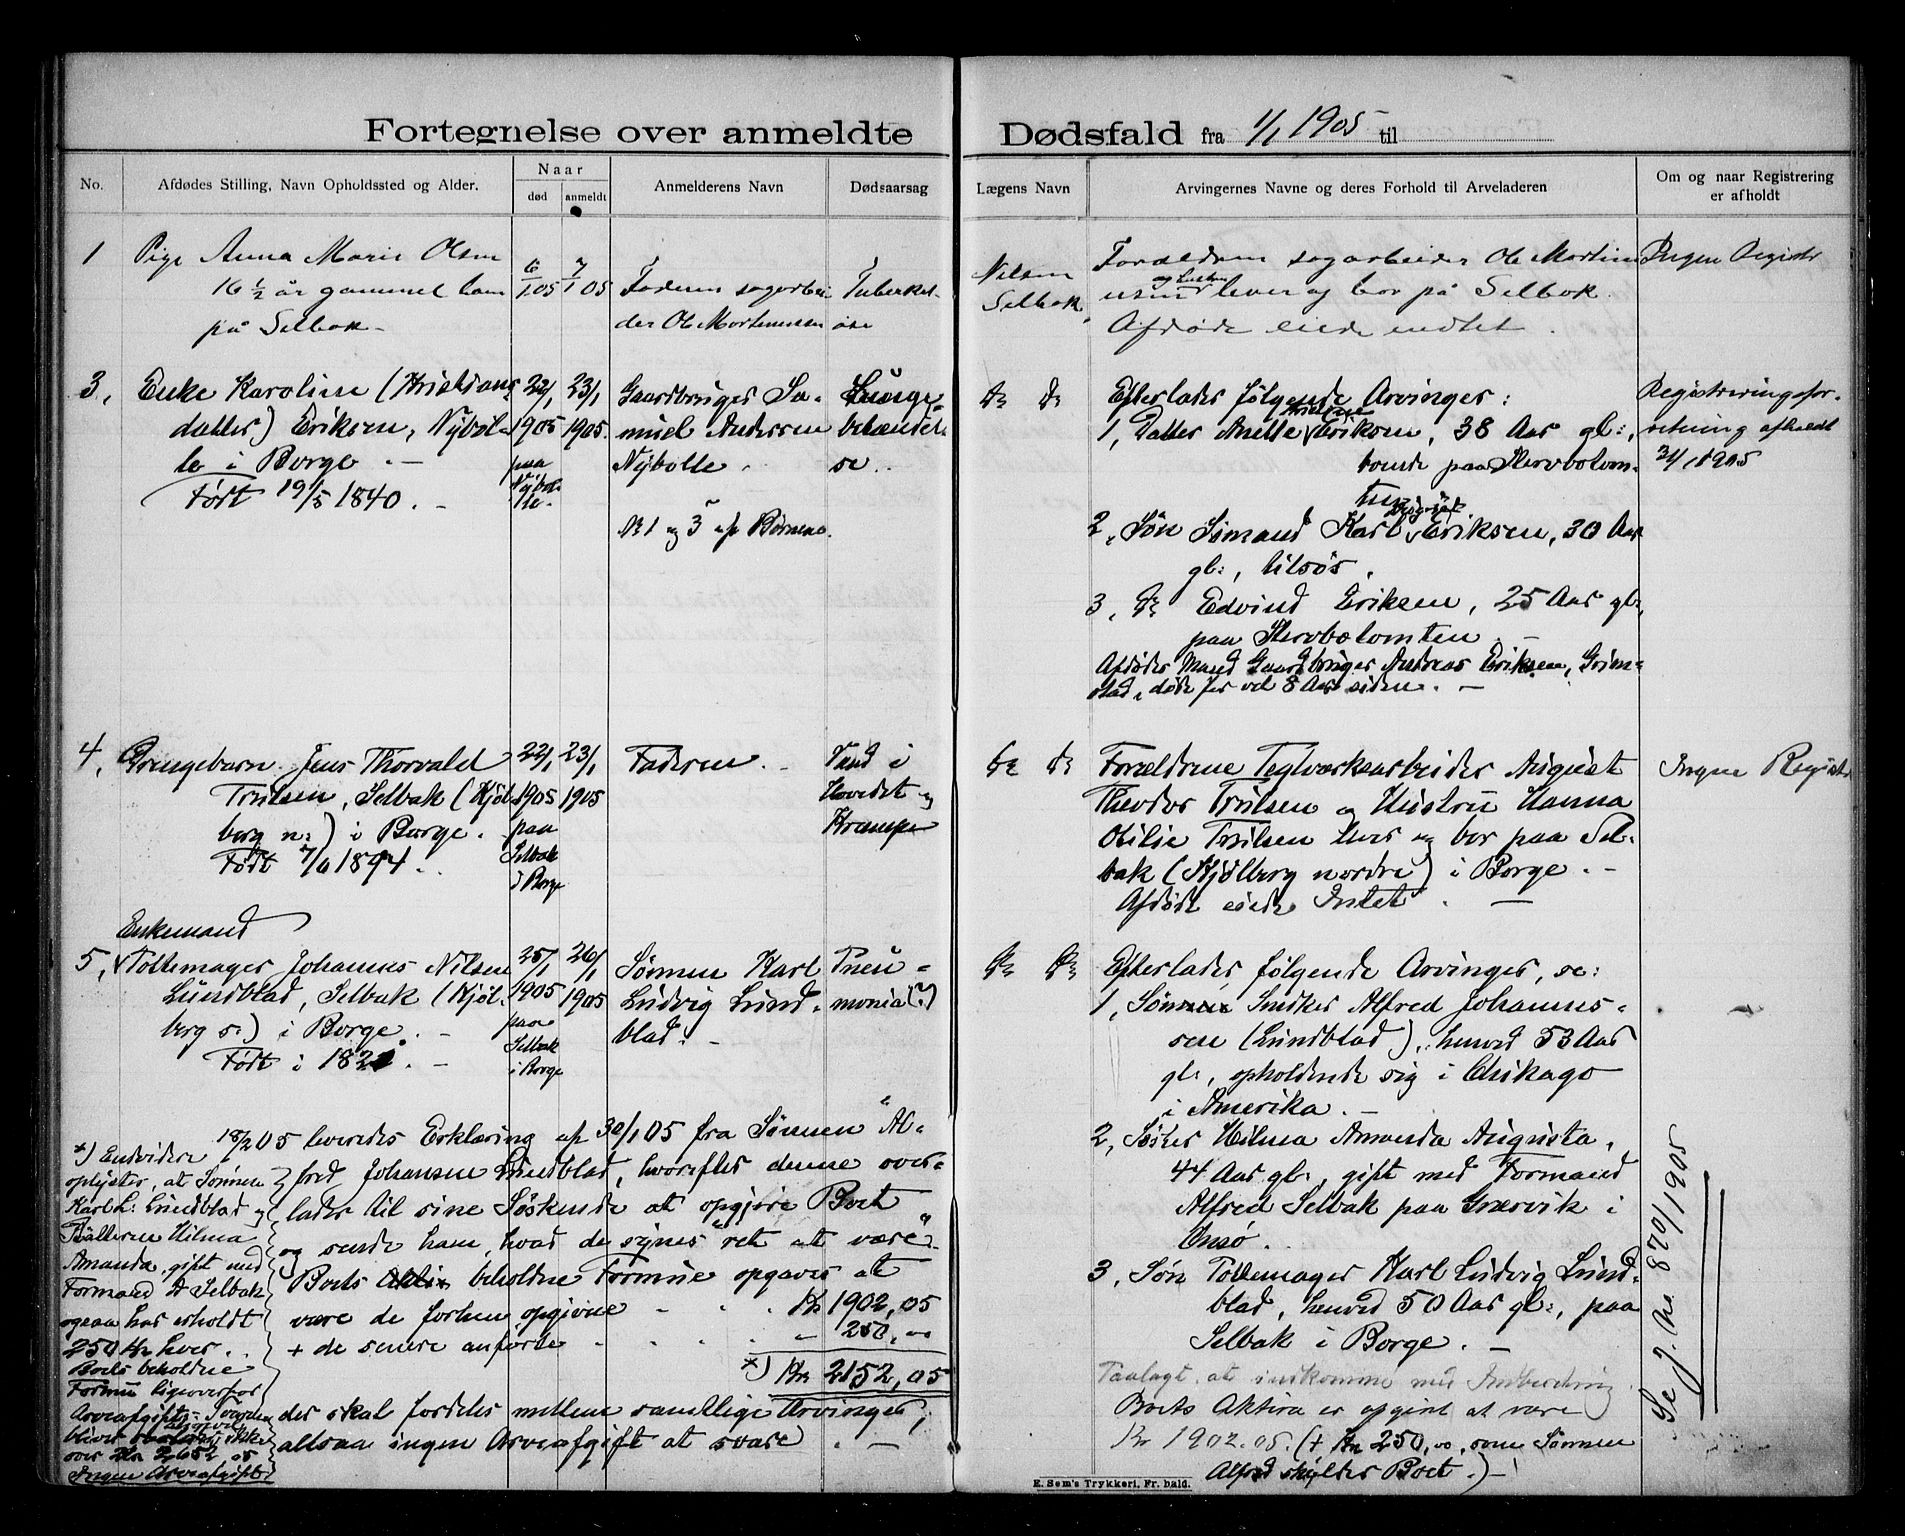 Fortegnelse over anmeldte Dødsfald fra 1/1 1905 til
No.
Afdødes Stilling, Navn Opholdssted og Alder.
Naar
død
anmeldt
Anmelderens Navn
Dødsaarsag
Lægens Navn
Arvingernes Navne og deres Forhold til Arveladeren
Om og naar Registrering
er afholdt
1
Pige Anna Marie Olsen
16 ½ år gammel
på Selbak -
6/1 05
7/1 05
Faderen sagarbei-
der Ole Mortensen
Tuberkel-
ose
Nilsen
Selbak
Forældrene sagarbeider Ole Martin
lever og bor på Selbak.
Afdøde eiede intet.
Ingen Registr
3,
Enke Karoline (Kristians
datter) Eriksen, Nÿbøl-
le i Borge. -
Født 19/5 1840. -
22/1
1905
paa
Nÿbøl-
le.
23/1
1905.
Gaardbruger Sa-
muel Andersen
Nÿbølle.
No 1 og 3 af Børnene.
Lunge-
betændel-
se.
Do Do
Efterlader følgende Arvinger:
1, Datter Anette Eriksen, 38 Aar gl.,
boende paa Stervbotom-
ten
2, Søn Sømand Karl Eriksen, 30 Aar
gl., tilsøs.
3, Do Edvind Eriksen, 25 Aar gl.,
paa Stervbotomten. -
Afdødes Mand Gaardbruger Andreas Eriksen, Grim-
stad, døde for vel 8 Aar siden. -
Registreringsfor-
retning afholdt
1905
4,
Drengebarn Jens Thorvald
Trulsen, Selbak (Kjøl-
berg n:) i Borge.
Født 1894.
22/1
1905
paa
Selbak
i Borge
23/1
1905
Faderen. -
Vand i
Hovedet og
Krampe
Do Do
Forældrene Teglværksarbeider August
Theodor Trulsen og Hustru Hanna
Otilie Trulsen lever og bor paa Sel-
bak (Kjølberg nordre) i Borge. -
Afdøde eiede Intet. -
Ingen Registr
Enkemand
5, Pottemager Johannes Nilsen
Lundblad, Selbak (Kjøl-
berg s:) i Borge. -
Født i 1821. -
25/1
1905
paa
Selbak
i Borge
26/1
1905
Sønnen Karl
Ludvig Lund-
blad. -
Pneu-
monia(?)
Do Do
Efterlader følgende Arvinger, se:
1, Sønnen Snedker Alfred Johannes-
sen (Lundblad), henved 53 Aar
gl., opholdende sig i Chikago
i Amerika. -
2, Søster Hilma Amanda Augusta,
44 Aar gl., gift med Formand
Alfred Selbak paa Græsvik i
Onsø.
3, Søn Pottemager Karl Ludvig Lund-
blad, henved 50 Aar gl., paa
Selbak i Borge. -
Paalagt at indkomme med Indberetning
Boets Aktiva er opgivet at være
Kr 1902.05. (+ Kr 250,00, som Sønnen
Alfred skylder Boet.) -
Se J. No. 870/1905
18/2 05 leveredes Erklæring af 30/1 05 fra Sønnen Al-
fred Johansen Lundblad, hvorefter denne over-
lader til sine Søskende at opgjøre Boet
og sende ham, hvad de synes "ret at være".
Boets beholdne Formue opgaves at
være de forhen opgivne - - . Kr 1902,05
+ de senere anførte - - - - 250,00
*) Kr 2152,05
der skal fordeles mellem samtlige Arvinger,
altsaa ingen Arveafgift at svare. -
*) Endvidere
oplyster, at Sønnen
Karl L. Lundblad og
Datteren Hilma
Amanda, gift med
Formand Do Selbak
ogsaa har erholdt
250 Kr hver.
Boets beholdne
Formue ligeoverfor
Arveafgifts-
bliver ikke
over Kr 2652,05
Ingen Arveafgift
E. Sem's Trykkeri, Fr. hald.